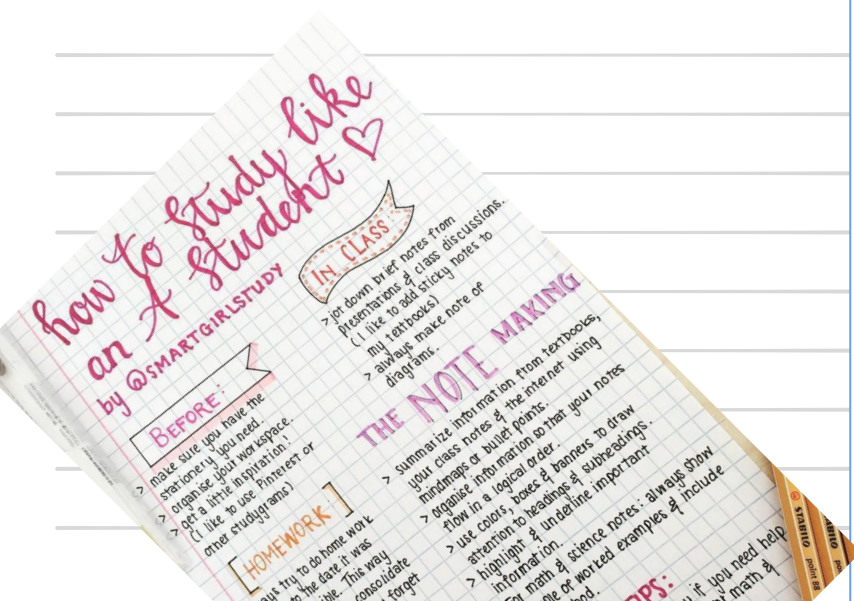 how to study like
an A student ♡
by @SMARTGIRLSTUDY
BEFORE:
> make sure you have the
stationery you need.
> organise your workspace.
> get a little inspiration!
(I like to use Pinterest or
other studygrams)
[HOMEWORK]
try to do home work
the date it was
This way
consolidate
forget
IN CLASS
> jot down brief notes from
presentations & class discussions.
(I like to add sticky notes to
my textbooks)
> always make note of
diagrams.
THE NOTE MAKING
> summarize information from textbooks,
your class notes & the internet using
mindmaps or bullet points.
> organise information so that your notes
flow in a logical order.
> use colors, boxes & banners to draw
attention to headings & subheadings.
> highlight & underline important
information.
For math & science notes: always show
of worked examples & include
if you need help
math &
STABILO
point 88
STABILO